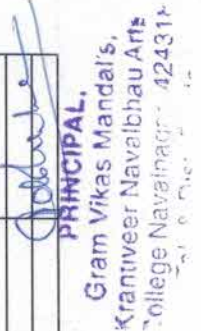 PRINCIPAL,
Gram Vikas Mandal's,
Krantiveer Navalbhau Arts
College Navalnagar 42431